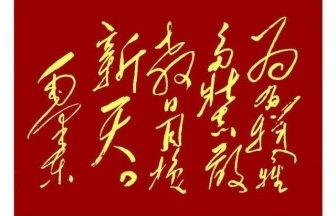 为有牺牲
多壮志敢
教日月换
新天
毛泽东